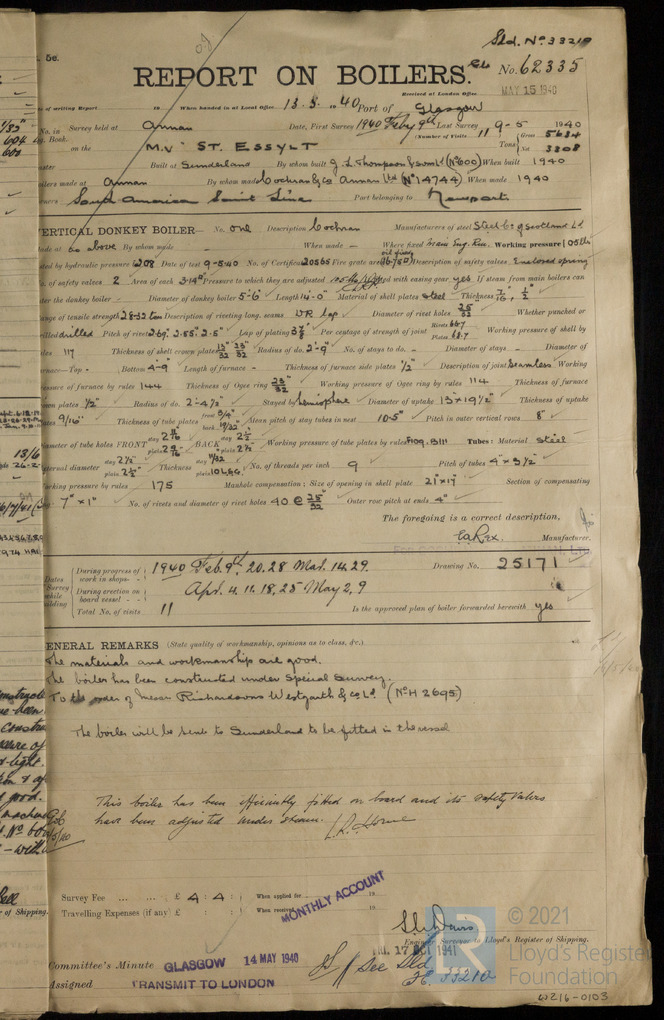 Sld. No 33210
5c.
REPORT ON BOILERS.
No. 62335
Received at London Office MAY 15 1940
of writing Report 19 When handed in at Local Office 13. 5. 1940 Port of Glasgow
No. in Survey held at Annan Date, First Survey 1940 Feby 9th Last Survey 9-5- 1940
Book. (Number of Visits 11
on the M.V. ST. ESSYLT Tons Gross 5634
Built at Sunderland By whom built J. L. Thompson & Sons Ld (No 600) When built 1940
Boilers made at Annan By whom made Cochran & Co Annan Ltd (No 14744) When made 1940
South American Saint Line Port belonging to Newport.
VERTICAL DONKEY BOILER— No. One Description Cochran Manufacturers of steel Steel Co. of Scotland Ld
Made at as above By whom made When made Where fixed Main Eng. Rm. Working pressure 105 lbs
tested by hydraulic pressure 208 Date of test 9-5-40 No. of Certificate 20565 Fire grate area oil fired Description of safety valves Enclosed spring
No. of safety valves 2 Area of each 3.14" Pressure to which they are adjusted 105 lbs with easing gear yes If steam from main boilers can
enter the donkey boiler - Diameter of donkey boiler 5'-6" Length 14'-0" Material of shell plates steel Thickness 7/16", 1/2"
Range of tensile strength 28-32 tons Description of riveting long. seams DR Lap Diameter of rivet holes 25/32 Whether punched or
drilled drilled Pitch of rivets 2.69" 2.55" 2.5" Lap of plating 3 7/8" Per centage of strength of joint Rivets 66.7 Plates 68.7 Working pressure of shell by
rules 117 Thickness of shell crown plates 23/32 Radius of do. 2'-9" No. of stays to do. - Diameter of stays - Diameter of
furnace—Top - Bottom 4'-9" Length of furnace - Thickness of furnace side plates 1/2" Description of joint Seamless Working
pressure of furnace by rules 144 Thickness of Ogee ring 23/32 Working pressure of Ogee ring by rules 114 Thickness of furnace
crown plates 1/2" Radius of do. 2'-4 1/2" Stayed by hemisphere Diameter of uptake 13" x 19 1/2" Thickness of uptake
plates 9/16" Thickness of tube plates front 3/4" back 19/32" Mean pitch of stay tubes in nest 10.5" Pitch in outer vertical rows 8"
Diameter of tube holes FRONT stay 2 11/16 plain 2 9/16 BACK stay 2 1/2 plain 2 1/2 Working pressure of tube plates by rules F109. B111 Tubes: Material steel
External diameter stay 2 1/2" plain 2 1/2" Thickness stay 11/32 plain 10 L.S.G. No. of threads per inch 9 Pitch of tubes 4" x 3 1/2"
Working pressure by rules 175 Manhole compensation: Size of opening in shell plate 21" x 17" Section of compensating
ring 7" x 1" No. of rivets and diameter of rivet holes 40 @ 25/32 Outer row pitch at ends 4"
The foregoing is a correct description,
Manufacturer.
Dates of Survey while building
During progress of work in shops - - 1940 Feb. 9. 20. 28 Mar. 14. 29. Drawing No. 25171
During erection on board vessel - - - Apr. 4. 11. 18. 25 May 2. 9
Total No. of visits 11 Is the approved plan of boiler forwarded herewith yes
GENERAL REMARKS (State quality of workmanship, opinions as to class, &c.)
The materials and workmanship are good.
The boiler has been constructed under Special Survey.
To the order of Messrs Richardsons Westgarth & Co Ld. (No H 2695)
The boiler will be sent to Sunderland to be fitted in the vessel
This boiler has been efficiently fitted on board and its safety valves
have been adjusted under steam.
Survey Fee ... ... £ 4 : 4 : When applied for 19
Travelling Expenses (if any) £ : : When received 19
MONTHLY ACCOUNT
Engineer Surveyor to Lloyd's Register of Shipping.
17 OCT 1941
Committee's Minute GLASGOW 14 MAY 1940
Assigned TRANSMIT TO LONDON
See Sld
33210
© 2021
Lloyd's Register
Foundation
W216-0103